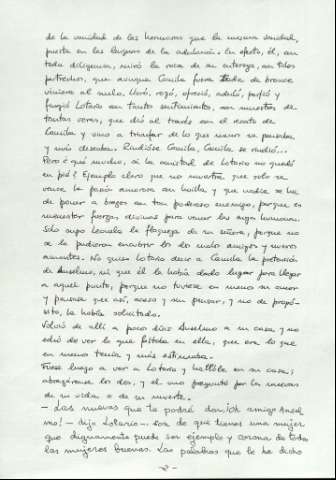 de la vanidad de las hermosas que la mesma vanidad,
puesta en las lenguas de la adulación. En efeto, él, con
toda diligencia, minó la roca de su entereza, con tales
pertrechos, que aunque Camila fuera toda de bronce
viniera al suelo. Lloró, rogó, ofreció, aduló, porfió y
fingió Lotario con tantos sentimientos, con muestras de
tantas veras, que dió al través con el recato de
Camila y vino a triunfar de lo que menos se pensaba
y más deseaba. Rindióse Camila, Camila se rindió...
Pero ¿qué mucho, si la amistad de Lotario no quedó
en pié? Ejemplo claro que no muestra que solo se
vence la pasión amorosa con huilla y que nadie se ha
de poner a brazos con tan poderoso enemigo, porque es
menester fuerzas divinas para vencer las suyas humanas.
Solo supo Leonela la flaqueza de su señora, porque no
se la pudieron encubrir los dos malos amigos y nuevos
amantes. No quiso Lotario decir a Camila la pretensión
de Anselmo, ni que él la había dado lugar para llegar
a aquel punto, porque no tuviese en menos su amor
y pensase que así, acaso y sin pensar, y no de propó-
sito, la había solicitado.
Volvió de allí a pocos días Anselmo a su casa, y no
echó de ver lo que faltaba en ella, que era lo que
en menos tenía y más estimaba.
Fuese luego a ver a Lotario y hallóle en su casa;
abrazáronse los dos, y el uno preguntó por las nuevas
de su vida o de su muerte.
- Las nuevas que te podré dar, ¡oh amigo Ansel
mo! - dijo Lotario - son de que tienes una mujer
que dignamente puede ser ejemplo y corona de todas
las mujeres buenas. Las palabras que le he dicho
-2-